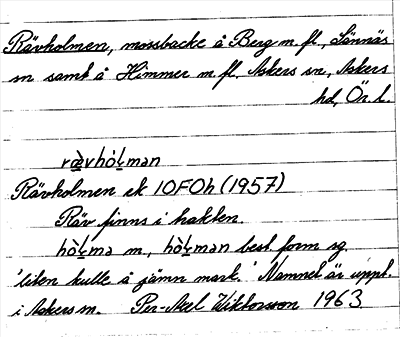 Rävholmen, mossbacke å Berg m fl, Lännäs
sn samt å Himmer m fl, Askers sn, Askers
hd, Ör. l.
rävhòlman
Rävholmen ek 10F0h (1957)
Räv finns i hakken.
hòlma m, hòlman best form sg
'liten kulle å jämn mark.' Namnet är uppt.
i Askers sn. Per-Axel Wiktorsson 1963